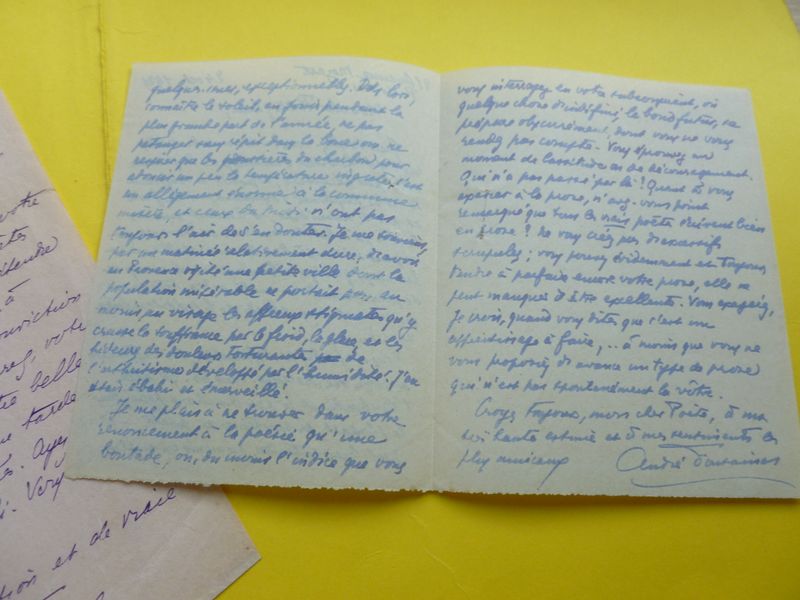 votre
à
conviction
votre
belle
tarde
Very
et de vraie
quelques-unes, exceptionnelles. Dès lors,
connaître le soleil, en jouir pendant la
plus grande part de l'année, ne pas
patauger sans répit dans la boue ou ne
respirer que les poussières du charbon pour
un peu la température c'est
un allègement énorme à la commune
misère, et ceux du Midi n'ont pas
toujours l'air de s'en douter. Je me souviens,
par une matinée relativement douce, d'avoir
en Provence visité une petite ville dont la
population misérable ne portait pas, au
moins au visage les affreux stigmates qu'y
creuse la souffrance par le froid, la glace, et les
hideurs des douleurs torturantes de
l'arthritisme développé par l'humidité. J'en
étais ébahi et émerveillé.
Je me plais à ne trouver dans votre
renoncement à la poésie qu'une
boutade, ou, du moins l'indice que vous
vous interrogez en votre subconscient, où
quelque chose d'indéfini, le bond futur, se
prépare obscurément, dont vous ne vous
rendez pas compte. Vous éprouvez un
moment de lassitude ou de découragement.
Qui n'a pas passé par là ! Quant à vous
exercer à la prose, n'avez-vous point
remarqué que tous les vrais poètes écrivent bien
en prose ? Ne vous créez pas d'excessifs
scrupules ; vous pouvez évidemment et toujours
tendre à parfaire encor votre prose, elle ne
peut manquer d'être excellente. Vous exagérez,
Je crois, quand vous dites que c'est un
apprentissage à faire, .. à moins que vous ne
vous proposiez d'avance un type de prose
qui n'est pas spontanément la vôtre.
Croyez toujours, mon cher Poète, à ma
très haute estime et à mes sentiments les
plus amicaux André Fontainas